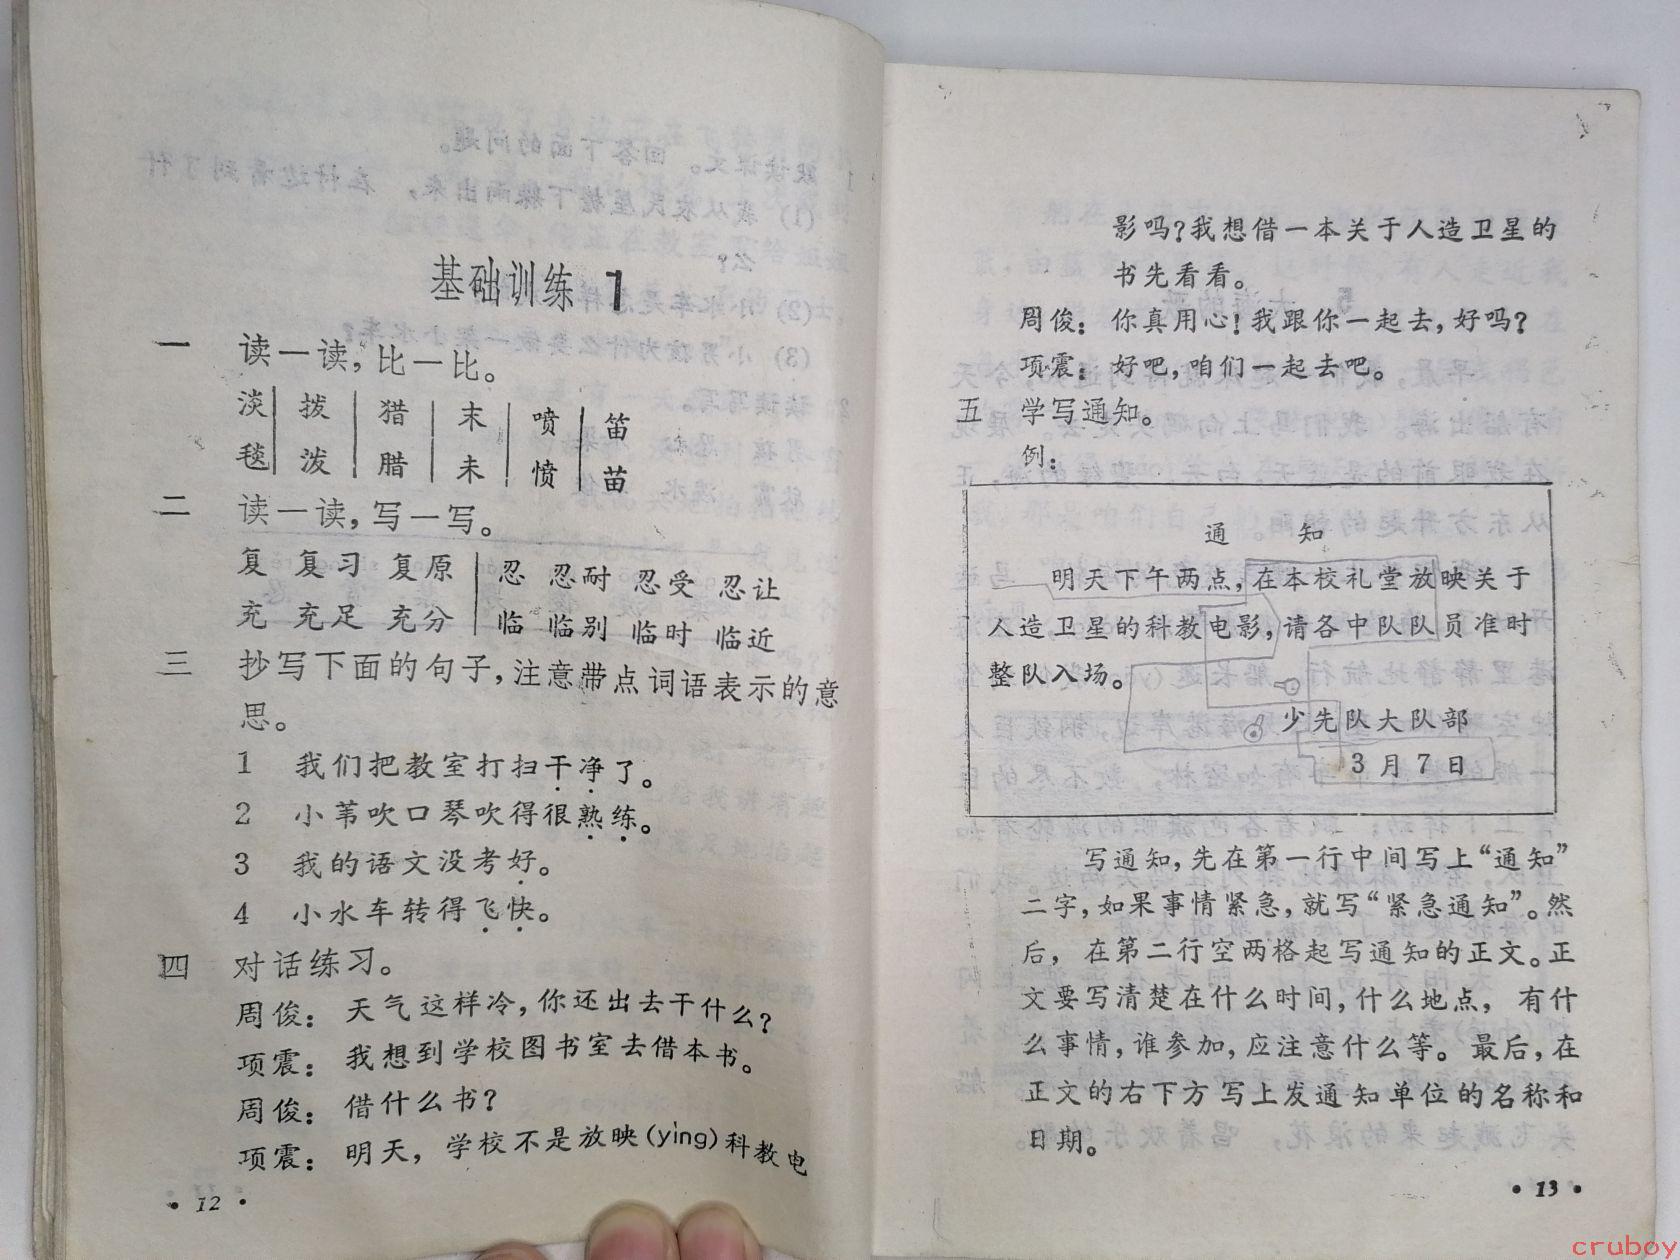 基础训练 1
一 读一读，比一比。
淡 拨 猎 末 喷 笛
毯 泼 腊 未 愤 苗
二 读一读，写一写。
复 复习 复原 忍 忍耐 忍受 忍让
充 充足 充分 临 临别 临时 临近
三 抄写下面的句子，注意带点词语表示的意
思。
1 我们把教室打扫干净了。
2 小苇吹口琴吹得很熟练。
3 我的语文没考好。
4 小水车转得飞快。
四 对话练习。
周俊：天气这样冷，你还出去干什么？
项震：我想到学校图书室去借本书。
周俊：借什么书？
项震：明天，学校不是放映(yìng)科教电
·12·
影吗？我想借一本关于人造卫星的
书先看看。
周俊：你真用心！我跟你一起去，好吗？
项震：好吧，咱们一起去吧。
五 学写通知。
例：
通 知
明天下午两点，在本校礼堂放映关于
人造卫星的科教电影，请各中队队员准时
整队入场。
少先队大队部
3月7日
写通知，先在第一行中间写上“通知”
二字，如果事情紧急，就写“紧急通知”。然
后，在第二行空两格起写通知的正文。正
文要写清楚在什么时间，什么地点，有什
么事情，谁参加，应注意什么等。最后，在
正文的右下方写上发通知单位的名称和
日期。
·13·
cruboy